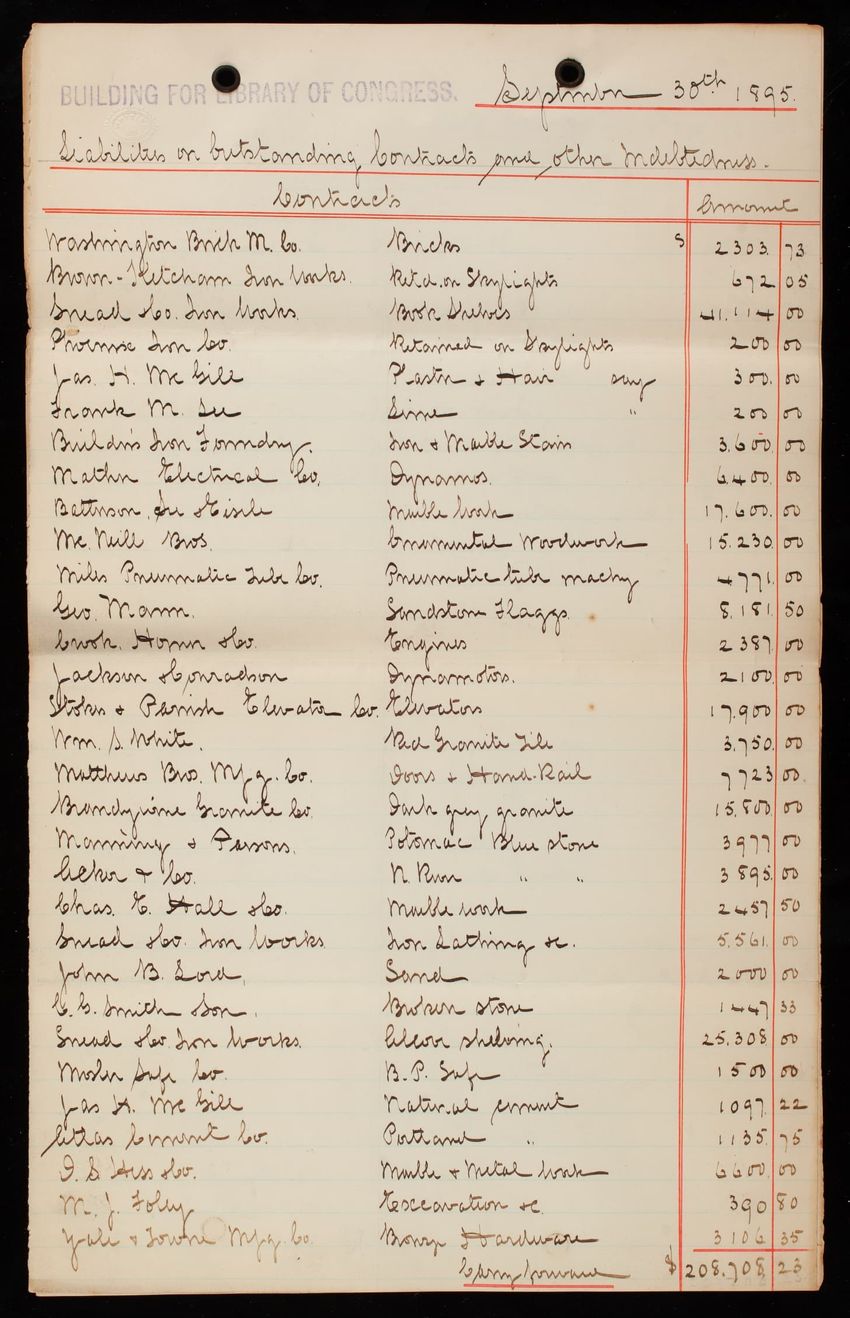 BUILDING FOR LIBRARY OF CONGRESS. September 30th 1895.
Liabilities on Outstanding Contracts and other Indebtedness.
Contracts Amount
Washington Brick M. Co. Bricks $ 2303.73
Brown-Ketcham Iron Works. Retd. on Skylights 672 05
Snead & Co. Iron Works. Book Shelves 41.114 00
Phoenix Iron Co. Retained on Skylights 200 00
Jas. H. McGill Plaster & Hair say 300. 00
Frank M. Lime " 200 00
Builders Iron Foundry. Iron & Marble Stairs 3.600. 00
Mather Electrical Co. Dynamos. 6.400. 00
Batterson, See & Eisele Marble Work 17.600. 00
Mc.Neill Bros. Ornamental Woodwork 15.230. 00
Miles Pneumatic Tube Co. Pneumatic tube machy 4771. 00
Geo. Mann. Sandstone Flaggs. 8.181. 50
Crook, Horner & Co. Engines 2387. 00
Jackson & Conradson Dynamotors. 2100. 00
Stokes & Parrish Elevator Co. Elevators 17.900 00
Wm. S. White. Red Granite Tile 3.750. 00
Matthews Bros. Mfg. Co. Doors & Hand-Rail 7723 00.
Brandywine Granite Co. Dark grey granite 15.800. 00
Manning & Parsons. Potomac Blue stone 3977 00
Acker & Co. N. River " " 3895. 00
Chas. E. Hall & Co. Marble work 2457 50
Snead & Co. Iron Works Iron Lathing &c. 5.561. 00
John B. Lord, Sand 2000 00
C. G. Smith & Son. Broken stone 1447 33
Snead & Co. Iron Works. Alcove shelving. 25.308. 00
Mosler Safe Co. B.P. Safe 1500 00
Jas H. McGill Natural cement 1097. 22
Atlas Cement Co. Portland " 1135. 75
D. S. Hess & Co. Marble & Metal work 6600. 00
M. J. Foley Excavation &c. 390 80
Yale & Towne Mfg. Co. Bronze Hardware 3106. 35
Carry forward $ 208.708. 23